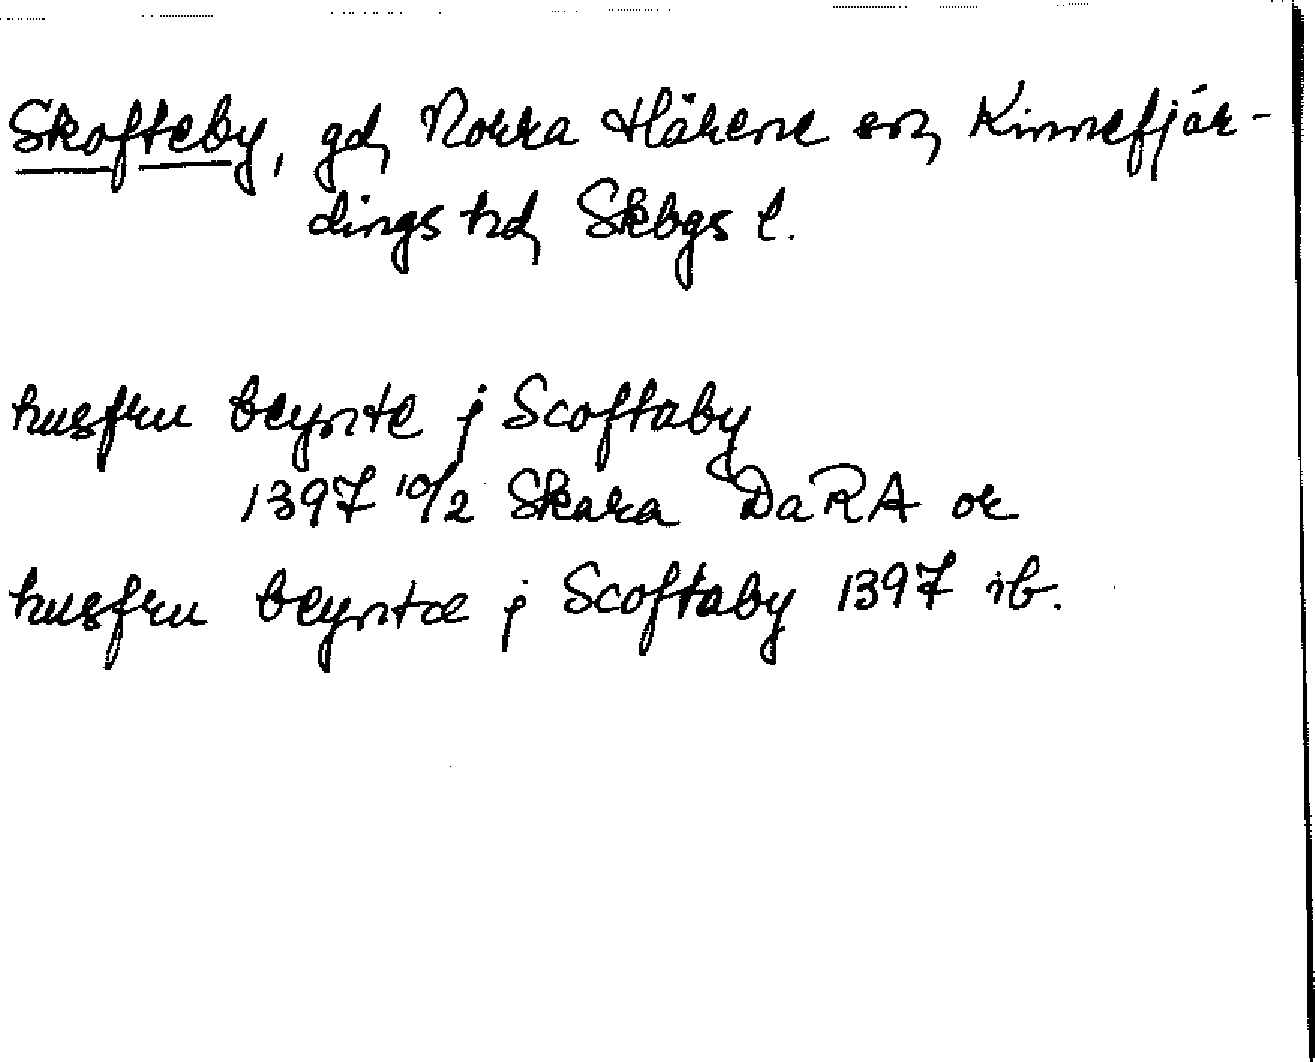 Skofteby, gd, Norra Härene sn, Kinnefjär-
dings hd, Skbgs l.
husfru beynte j Scoftaby
1397 10/2 Skara DaRA or
husfru beyntæ j Scoftaby 1397 ib.